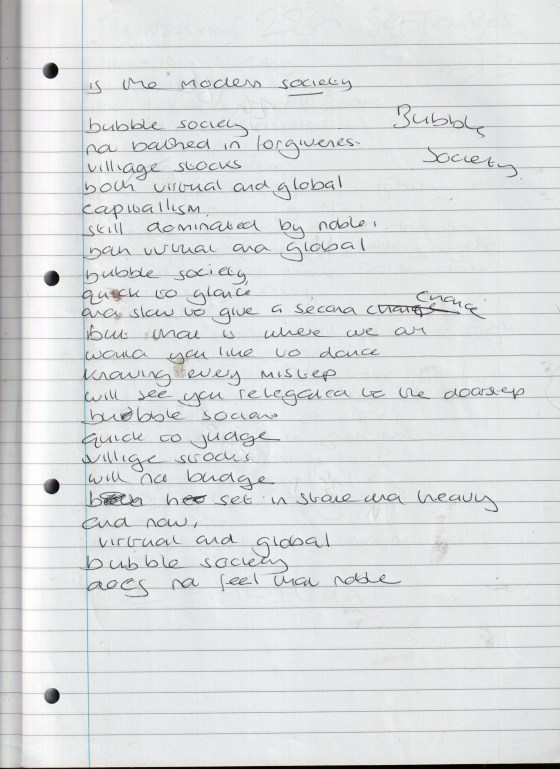 is the modern society
Bubble
Society
bubble society
not bathed in forgivenes.
villiage stocks
both virtual and global
capitallism.
still dominated by noble.
both virtual and global
bubble society
quick to glance
and slow to give a second chance
but that is where we are
would you like to dance
knowing every misstep
will see you relegated to the doorstep
bubble society
quick to judge
villige stocks
will not budge
set in stone and heavy
and now,
virtual and global
bubble society
does not feel that noble